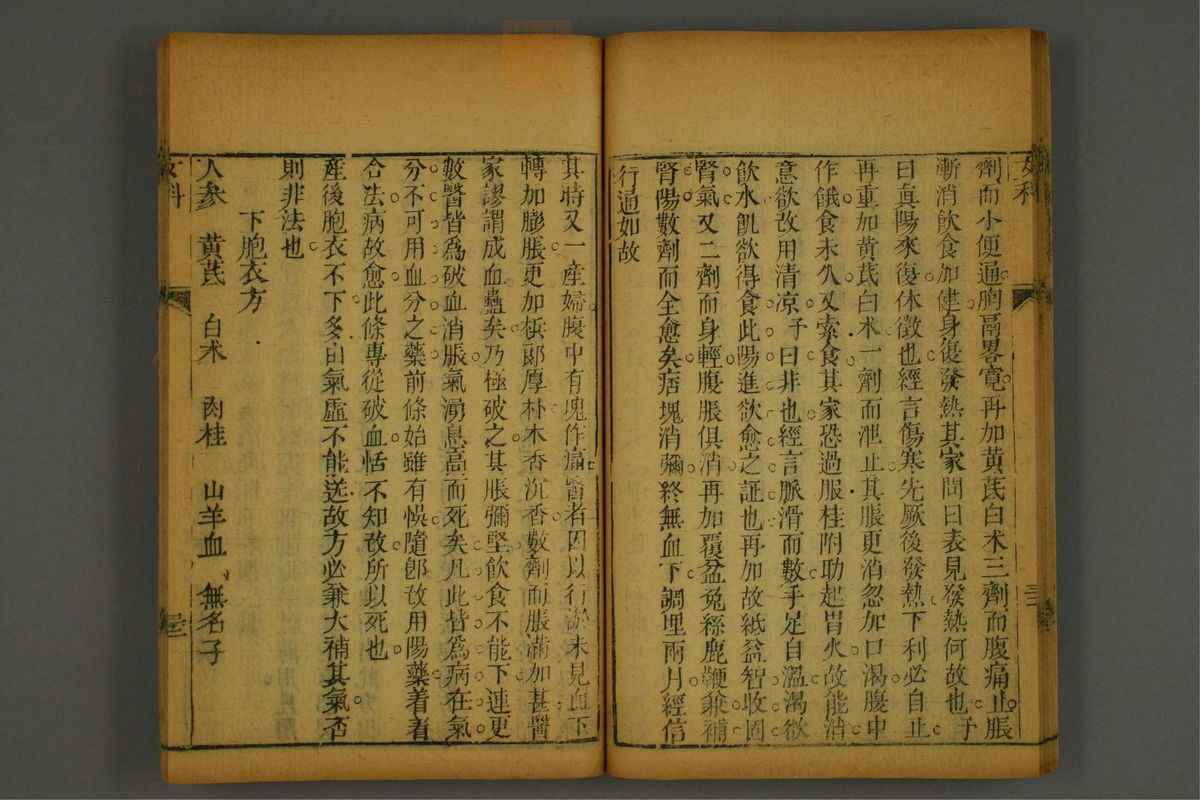 女科
劑而小便通胸膈畧寬再加黃芪白术三劑而腹痛止脹
漸消飲食加健身復發熱其家問曰表見發熱何故也予
曰真陽來復休徵也經言傷寒先厥後發熱下利必自止
再重加黃芪白术一劑而泄止其脹更消忽加口渴腹中
作餓食未久又索食其家恐過服桂附助起胃火故能消
意欲改用清凉予曰非也經言脈滑而數手足自溫渴欲
飲水飢欲得食此陽進欲愈之証也再加故紙益智收固
腎氣又二劑而身輕腹脹俱消再加覆盆兔絲鹿鞭兼補
腎陽數劑而全愈矣痞塊消彌終無血下調理兩月經信
行通如故
其時又一產婦腹中有塊作痛醫者因以行瘀未見血下
轉加膨脹更加梹郎厚朴木香沉香數劑而脹滿加甚醫
家謬謂成血蠱矣乃極破之其脹彌堅飲食不能下連更
數醫皆為破血消脹氣湧息高而死矣凡此皆為病在氣
分不可用血分之藥前條始雖有悞隨卽改用陽藥着着
合法病故愈此條專從破血恬不知改所以死也
產後胞衣不下多由氣虛不能送故方必兼大補其氣否
則非法也
下胞衣方
人參　黃芪　白术　肉桂　山羊血　無名子
女科